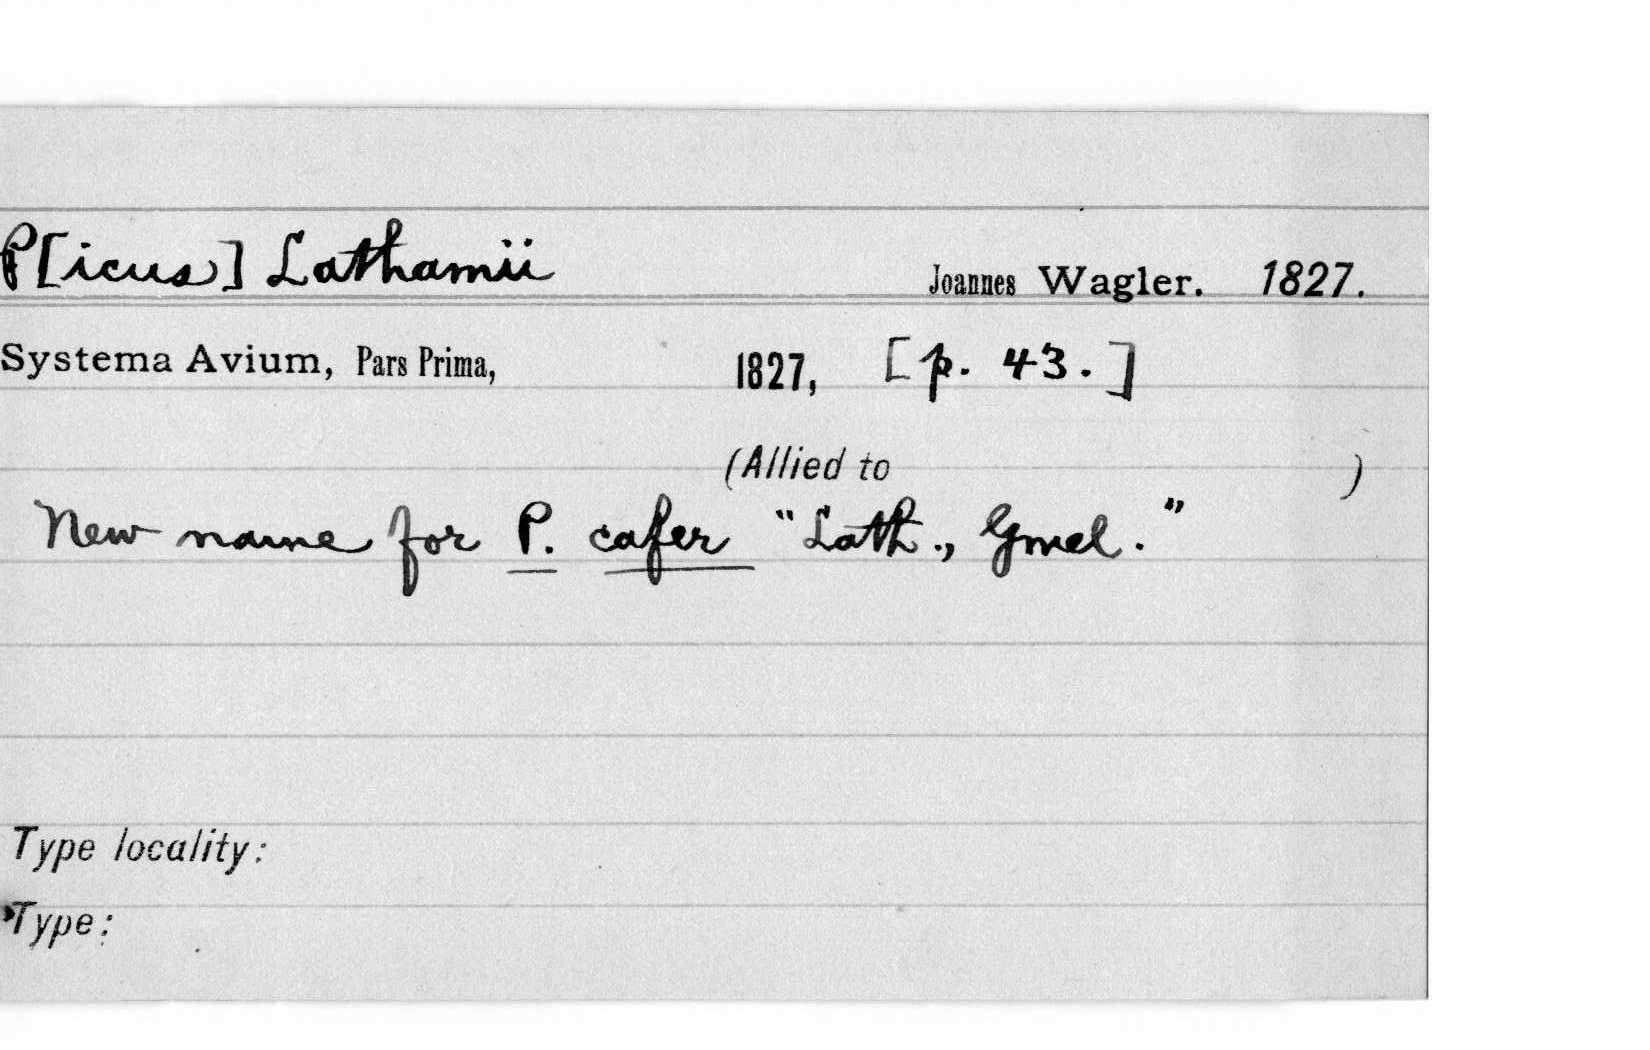 P[icus] Lathamii Joannes Wagler. 1827.
Systema Avium, Pars Prima, 1827, [p. 43.]
(Allied to )
New name for P. cafer "Lath., Gmel."
Type locality:
Type: